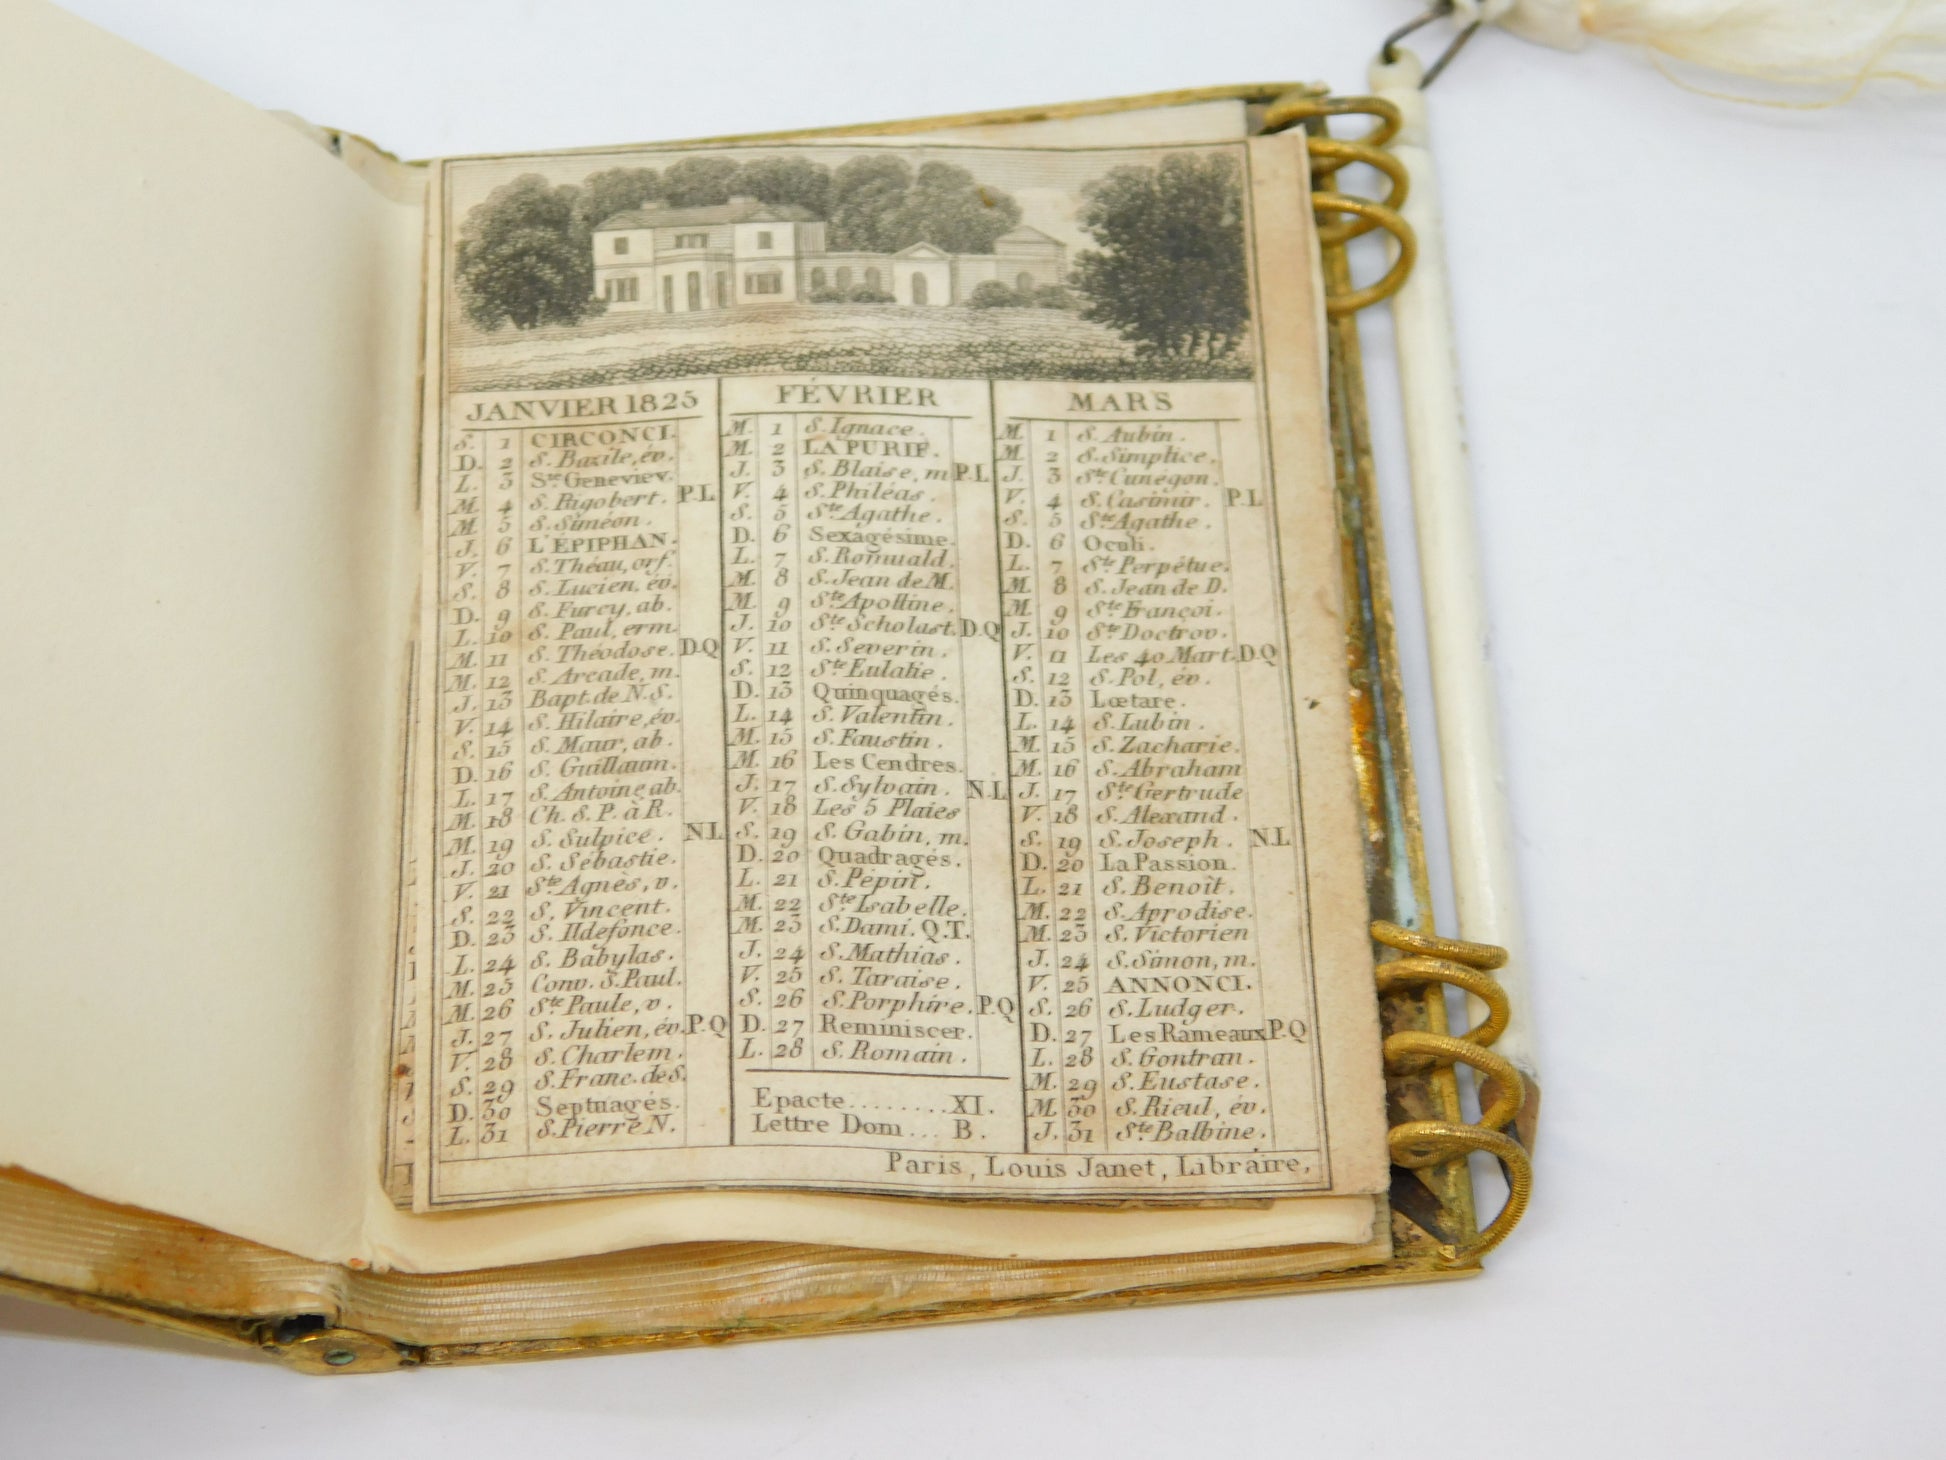 JANVIER 1825
S. 1 CIRCONCI.
D. 2 S. Bazile, év.
L. 3 Ste Geneviev.
M. 4 S. Rigobert. P.L
M. 5 S. Siméon.
J. 6 L'ÉPIPHAN.
V. 7 S. Théau, orf.
S. 8 S. Lucien, év.
D. 9 S. Furcy, ab.
L. 10 S. Paul, erm.
M. 11 S. Théodose. D.Q
M. 12 S. Arcade, m.
J. 13 Bapt. de N.S.
V. 14 S. Hilaire, év.
S. 15 S. Maur, ab.
D. 16 S. Guillaum.
L. 17 S. Antoine, ab.
M. 18 Ch. S. P. à R.
M. 19 S. Sulpice. N.L
J. 20 S. Sébastie.
V. 21 Ste Agnès, v.
S. 22 S. Vincent.
D. 23 S. Ildefonce.
L. 24 S. Babylas.
M. 25 Conv. S. Paul.
M. 26 Ste Paule, v.
J. 27 S. Julien, év. P.Q
V. 28 S. Charlem.
S. 29 S. Franc. de S.
D. 30 Septuagés.
L. 31 S. Pierre N.
FÉVRIER
M. 1 S. Ignace.
M. 2 LA PURIF.
J. 3 S. Blaise, m P.L
V. 4 S. Philéas.
S. 5 Ste Agathe.
D. 6 Sexagésime.
L. 7 S. Romuald.
M. 8 S. Jean de M.
M. 9 Ste Apolline.
J. 10 Ste Scholast. D.Q
V. 11 S. Severin.
S. 12 Ste Eulalie.
D. 13 Quinquagés.
L. 14 S. Valentin.
M. 15 S. Faustin.
M. 16 Les Cendres.
J. 17 S. Sylvain. N.L
V. 18 Les 5 Plaies
S. 19 S. Gabin, m.
D. 20 Quadragés.
L. 21 S. Pépin.
M. 22 Ste Isabelle.
M. 23 S. Dami. Q.T.
J. 24 S. Mathias.
V. 25 S. Taraise.
S. 26 S. Porphire. P.Q
D. 27 Reminiscer.
L. 28 S. Romain.
Epacte........XI.
Lettre Dom... B.
MARS
M. 1 S. Aubin.
M. 2 S. Simplice.
J. 3 Ste Cunégon.
V. 4 S. Casimir. P.L
S. 5 Ste Agathe.
D. 6 Oculi.
L. 7 Ste Perpétue.
M. 8 S. Jean de D.
M. 9 Ste Françoi.
J. 10 Ste Doctrov.
V. 11 Les 40 Mart. D.Q
S. 12 S. Pol, év.
D. 13 Lœtare.
L. 14 S. Lubin.
M. 15 S. Zacharie.
M. 16 S. Abraham
J. 17 Ste Gertrude
V. 18 S. Alexand.
S. 19 S. Joseph. N.L
D. 20 La Passion.
L. 21 S. Benoît.
M. 22 S. Aprodise.
M. 23 S. Victorien
J. 24 S. Simon, m.
V. 25 ANNONCI.
S. 26 S. Ludger.
D. 27 Les Rameaux P.Q
L. 28 S. Gontran.
M. 29 S. Eustase.
M. 30 S. Rieul, év.
J. 31 Ste Balbine.
Paris, Louis Janet, Libraire,